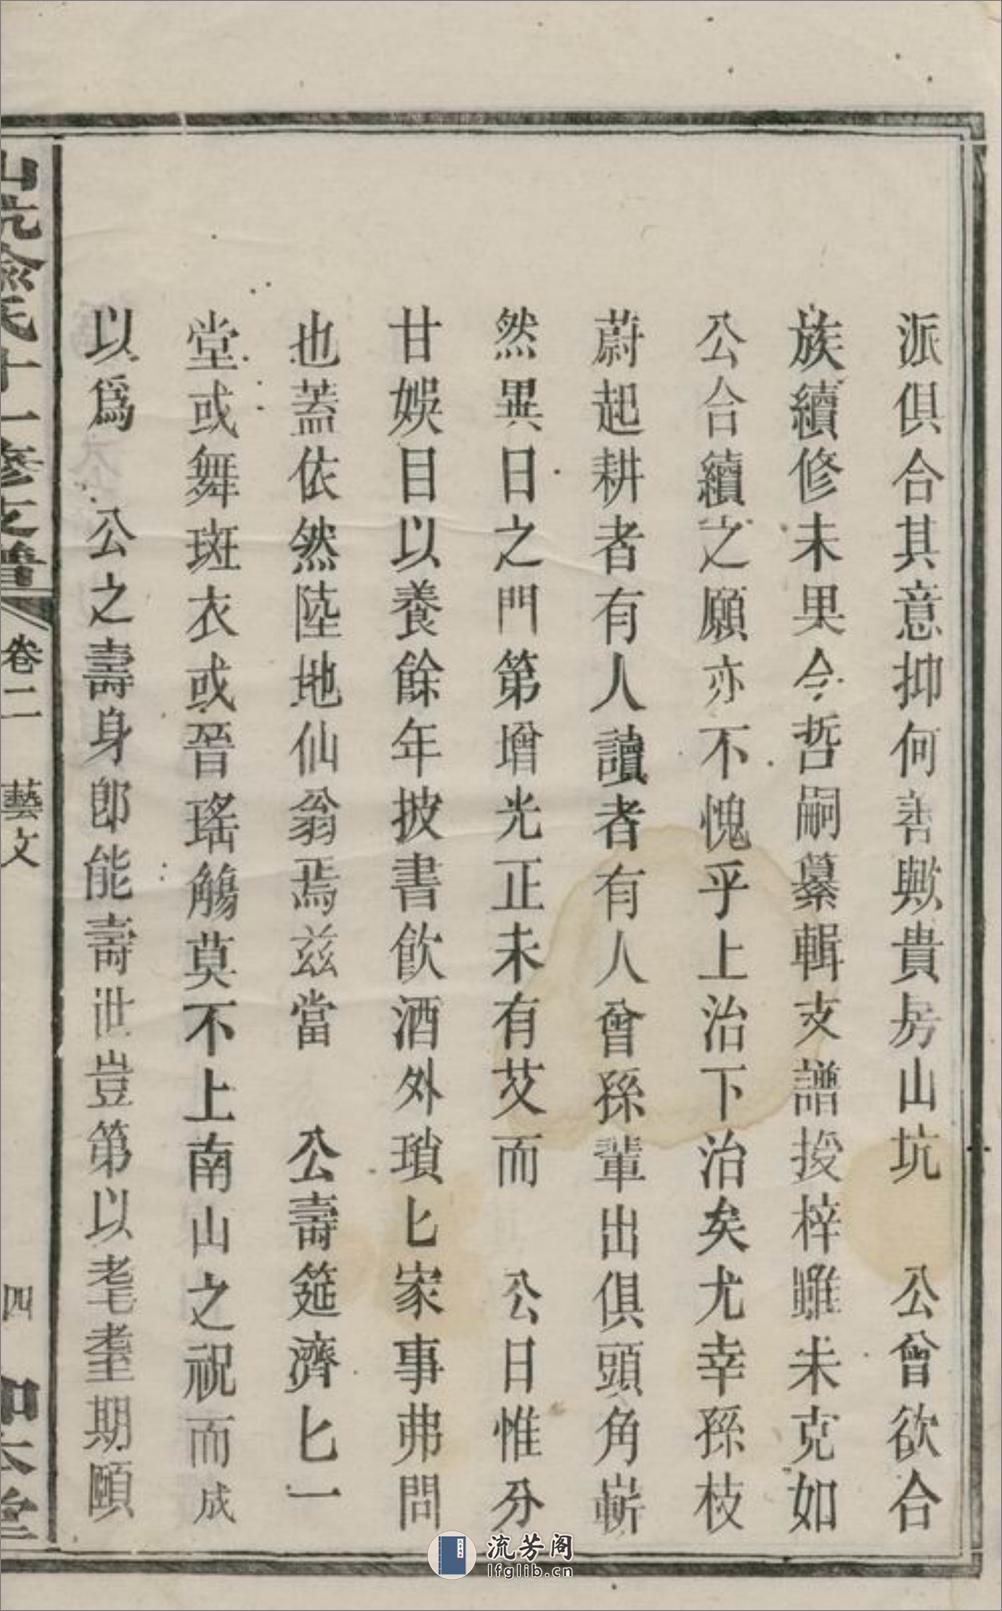 派俱合其意抑何善歟貴房山坑　公曾欲合
族續修未果今哲嗣纂輯支譜授梓雖未克如
公合續之願亦不愧乎上治下治矣尤幸孫枝
蔚起耕者有人讀者有人曾孫輩出俱頭角嶄
然異日之門第增光正未有艾而　公日惟分
甘娛目以養餘年披書飲酒外瑣匕家事弗問
也蓋依然陸地仙翁焉兹當　公壽筵濟匕一
堂或舞斑衣或晉瑤觴莫不上南山之祝而成
以爲　公之壽身卽能壽世豈第以耄耋期頤
山坑俞氏十一修支譜　卷二　藝文　四
流芳阁
lfglib.cn